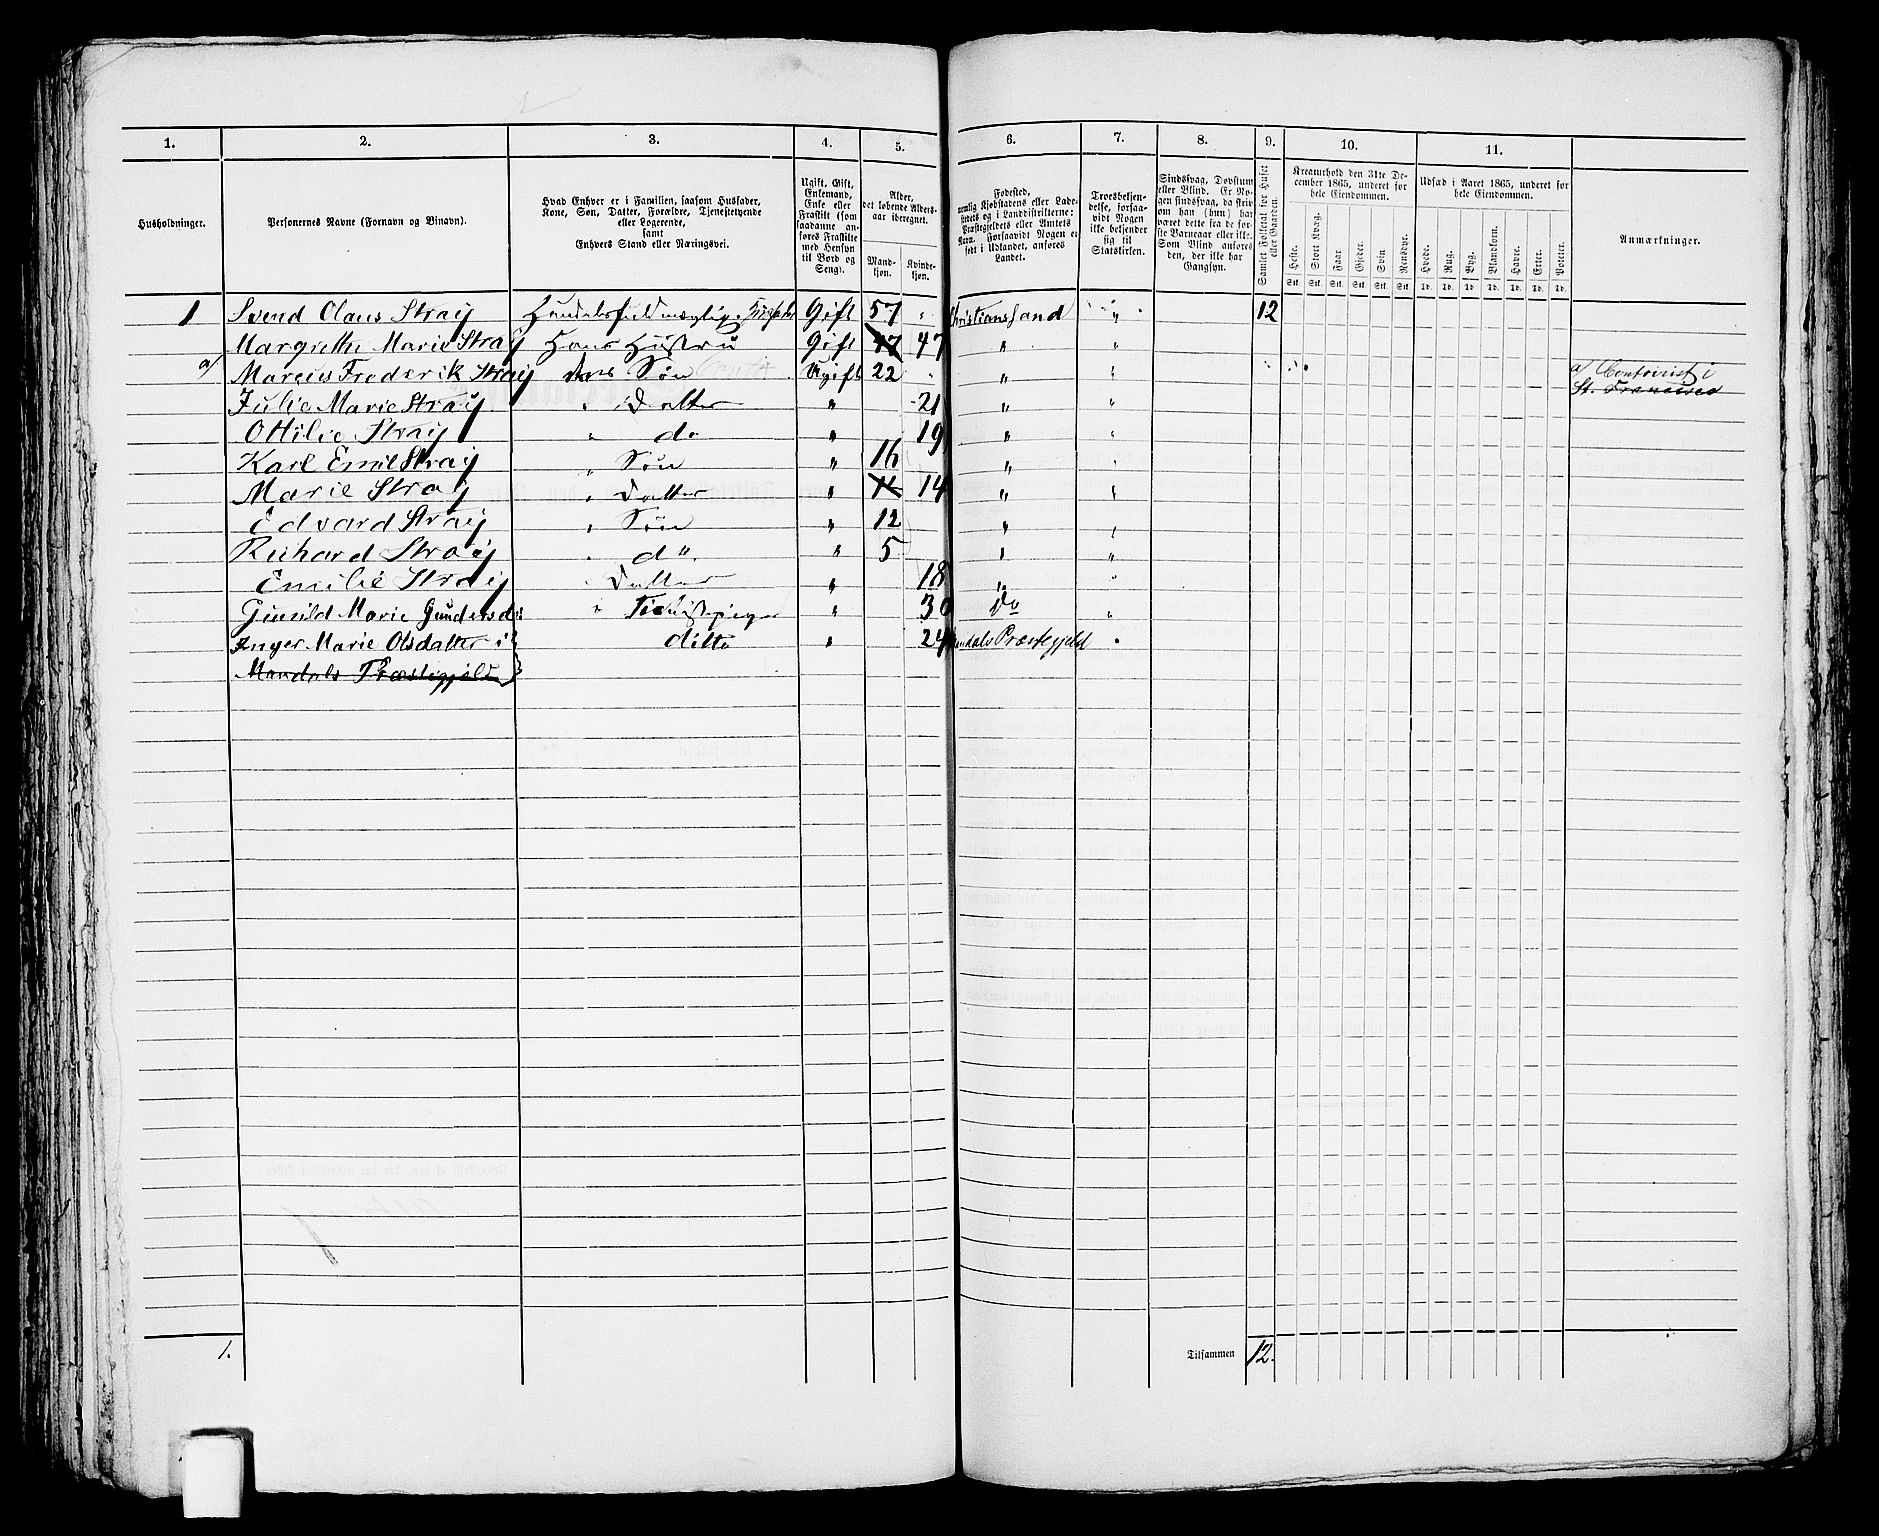 1. 2. 3. 4. 5. 6. 7. 8. 9. 10. 11.
Husholdninger.
Personernes Navne (Fornavn og Binavn).
Hvad Enhver er i Familien, saasom Husfader,
Kone, Søn, Datter, Forældre, Tjenestetyende
eller Logerende,
samt
Enhvers Stand eller Næringsvei.
Ugift, Gift,
Enkemand,
Enke eller
Fraskilt (som
saadanne an-
føres Fraskilte
med Hensyn
til Bord og
Seng).
Alder,
det løbende Alders-
aar iberegnet.
Mand-
kjøn.
Kvinde-
kjøn.
Fødested,
nemlig Kjøbstadens eller Lade-
stedets og i Landdistrikterne:
Præstegjeldets eller Amtets
Navn. Forsaavidt Nogen er
født i Udlandet, anføres
Landet.
Troesbekjen-
delse, forsaa-
vidt Nogen
ikke bekjender
sig til
Statskirken.
Sindssvag, Døvstum
eller Blind. Er No-
gen sindssvag, da skriv
om han (hun) har
været dette fra de før-
ste Barneaar eller ikke.
Som Blind anføres
den, der ikke har
Gangsyn.
Samlet Folketal for Huset
eller Gaarden.
Kreaturhold den 31te De-
cember 1865, underet for
hele Eiendommen.
Heste. Stort Kvæg. Faar Gjeder. Svin Rensdyr.
Stk. Stk. Stk. Stk. Stk. Stk.
Udsæd i Aaret 1865, underet for
hele Eiendommen.
Hvede. Rug. Byg. Blandkorn. Havre. Erter. Poteter.
Td. Td. Td. Td. Td. Td. Td.
Anmærkninger.
1 Svend Olaus Straÿ Gift 57 " Christianssand " 12
Margrethe Marie Straÿ Hans Hustru Gift 47 47 " "
a/ Marcus Frederik Straÿ deres Søn Ugift 22 " " a/ Contorist i
St. Francisco
Julie Marie Straÿ " Datter " 21 " "
Ottilie Straÿ " do " 19 " "
Karl Emil Straÿ " Søn " 16 "
Marie Straÿ " Datter " 14 " "
Edvard Straÿ " Søn " 12 " "
Richard Straÿ " d" " 5 " "
Emilie Straÿ Datter " 18 " "
Gunild Marie " Tjenestepiger " 30 Do "
Inger Marie Olsdatter i ditto " 24 Mandals Præstegjeld "
Mandals Præstegjeld
1. Tilsammen 12.